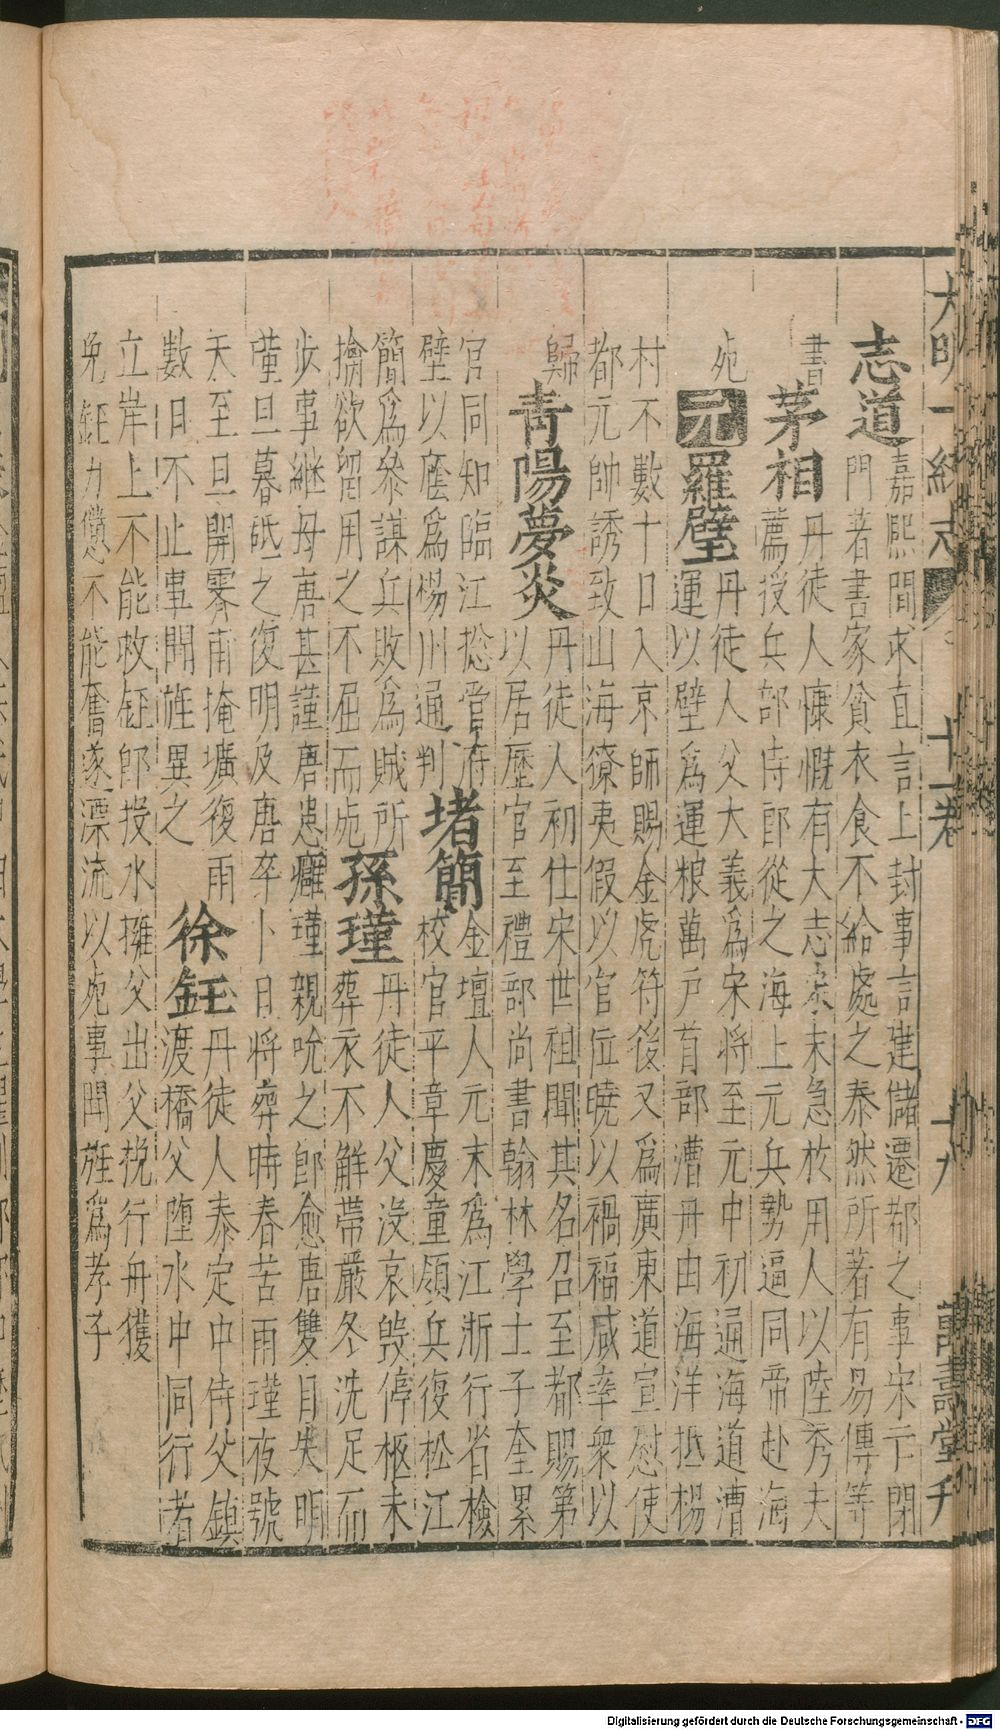 大明一統志 十一卷 十九 萬壽堂刊
志道
嘉熙間求直言上封事言建儲遷都之事宋亡閉
門著書家貧衣食不給處之泰然所著有易傳等
書
茅相
丹徒人慷慨有大志宋末急於用人以陸秀夫
薦授兵部侍郎從之海上元兵勢逼同帝赴海
死
元
羅璧
丹徒人父大義為宋將至元中初通海道漕
運以璧為運粮萬戶首部漕舟由海洋抵楊
村不數十日入京師賜金虎符後又為廣東道宣慰使
都元帥誘致山海獠夷假以官位曉以禍福咸率衆以
歸
青陽夢炎
丹徒人初仕宋世祖聞其名召至都賜第
以居歷官至禮部尚書翰林學士子奎累
官同知臨江總管府
璧以廕為楊州通判
堵簡
金壇人元末為江浙行省檢
校官平章慶童領兵復松江
簡為叅謀兵敗為賊所
擒欲留用之不屈而死
孫瑾
丹徒人父沒哀毀停柩未
葬衣不解帶嚴冬洗足而
步事繼母唐甚謹唐患癰瑾親吮之即愈唐雙目失明
瑾旦暮砥之復明及唐卒卜日將葬時春苦雨瑾夜號
天至旦開霽甫掩壙復雨
數日不止事聞旌異之
徐鈺
丹徒人泰定中侍父鎮
渡橋父堕水中同行者
立岸上不能救鈺即投水擁父出父挽行舟獲
免鈺力憊不能奮遂漂流以死事聞旌為孝子
Digitalisierung gefördert durch die Deutsche Forschungsgemeinschaft - DFG